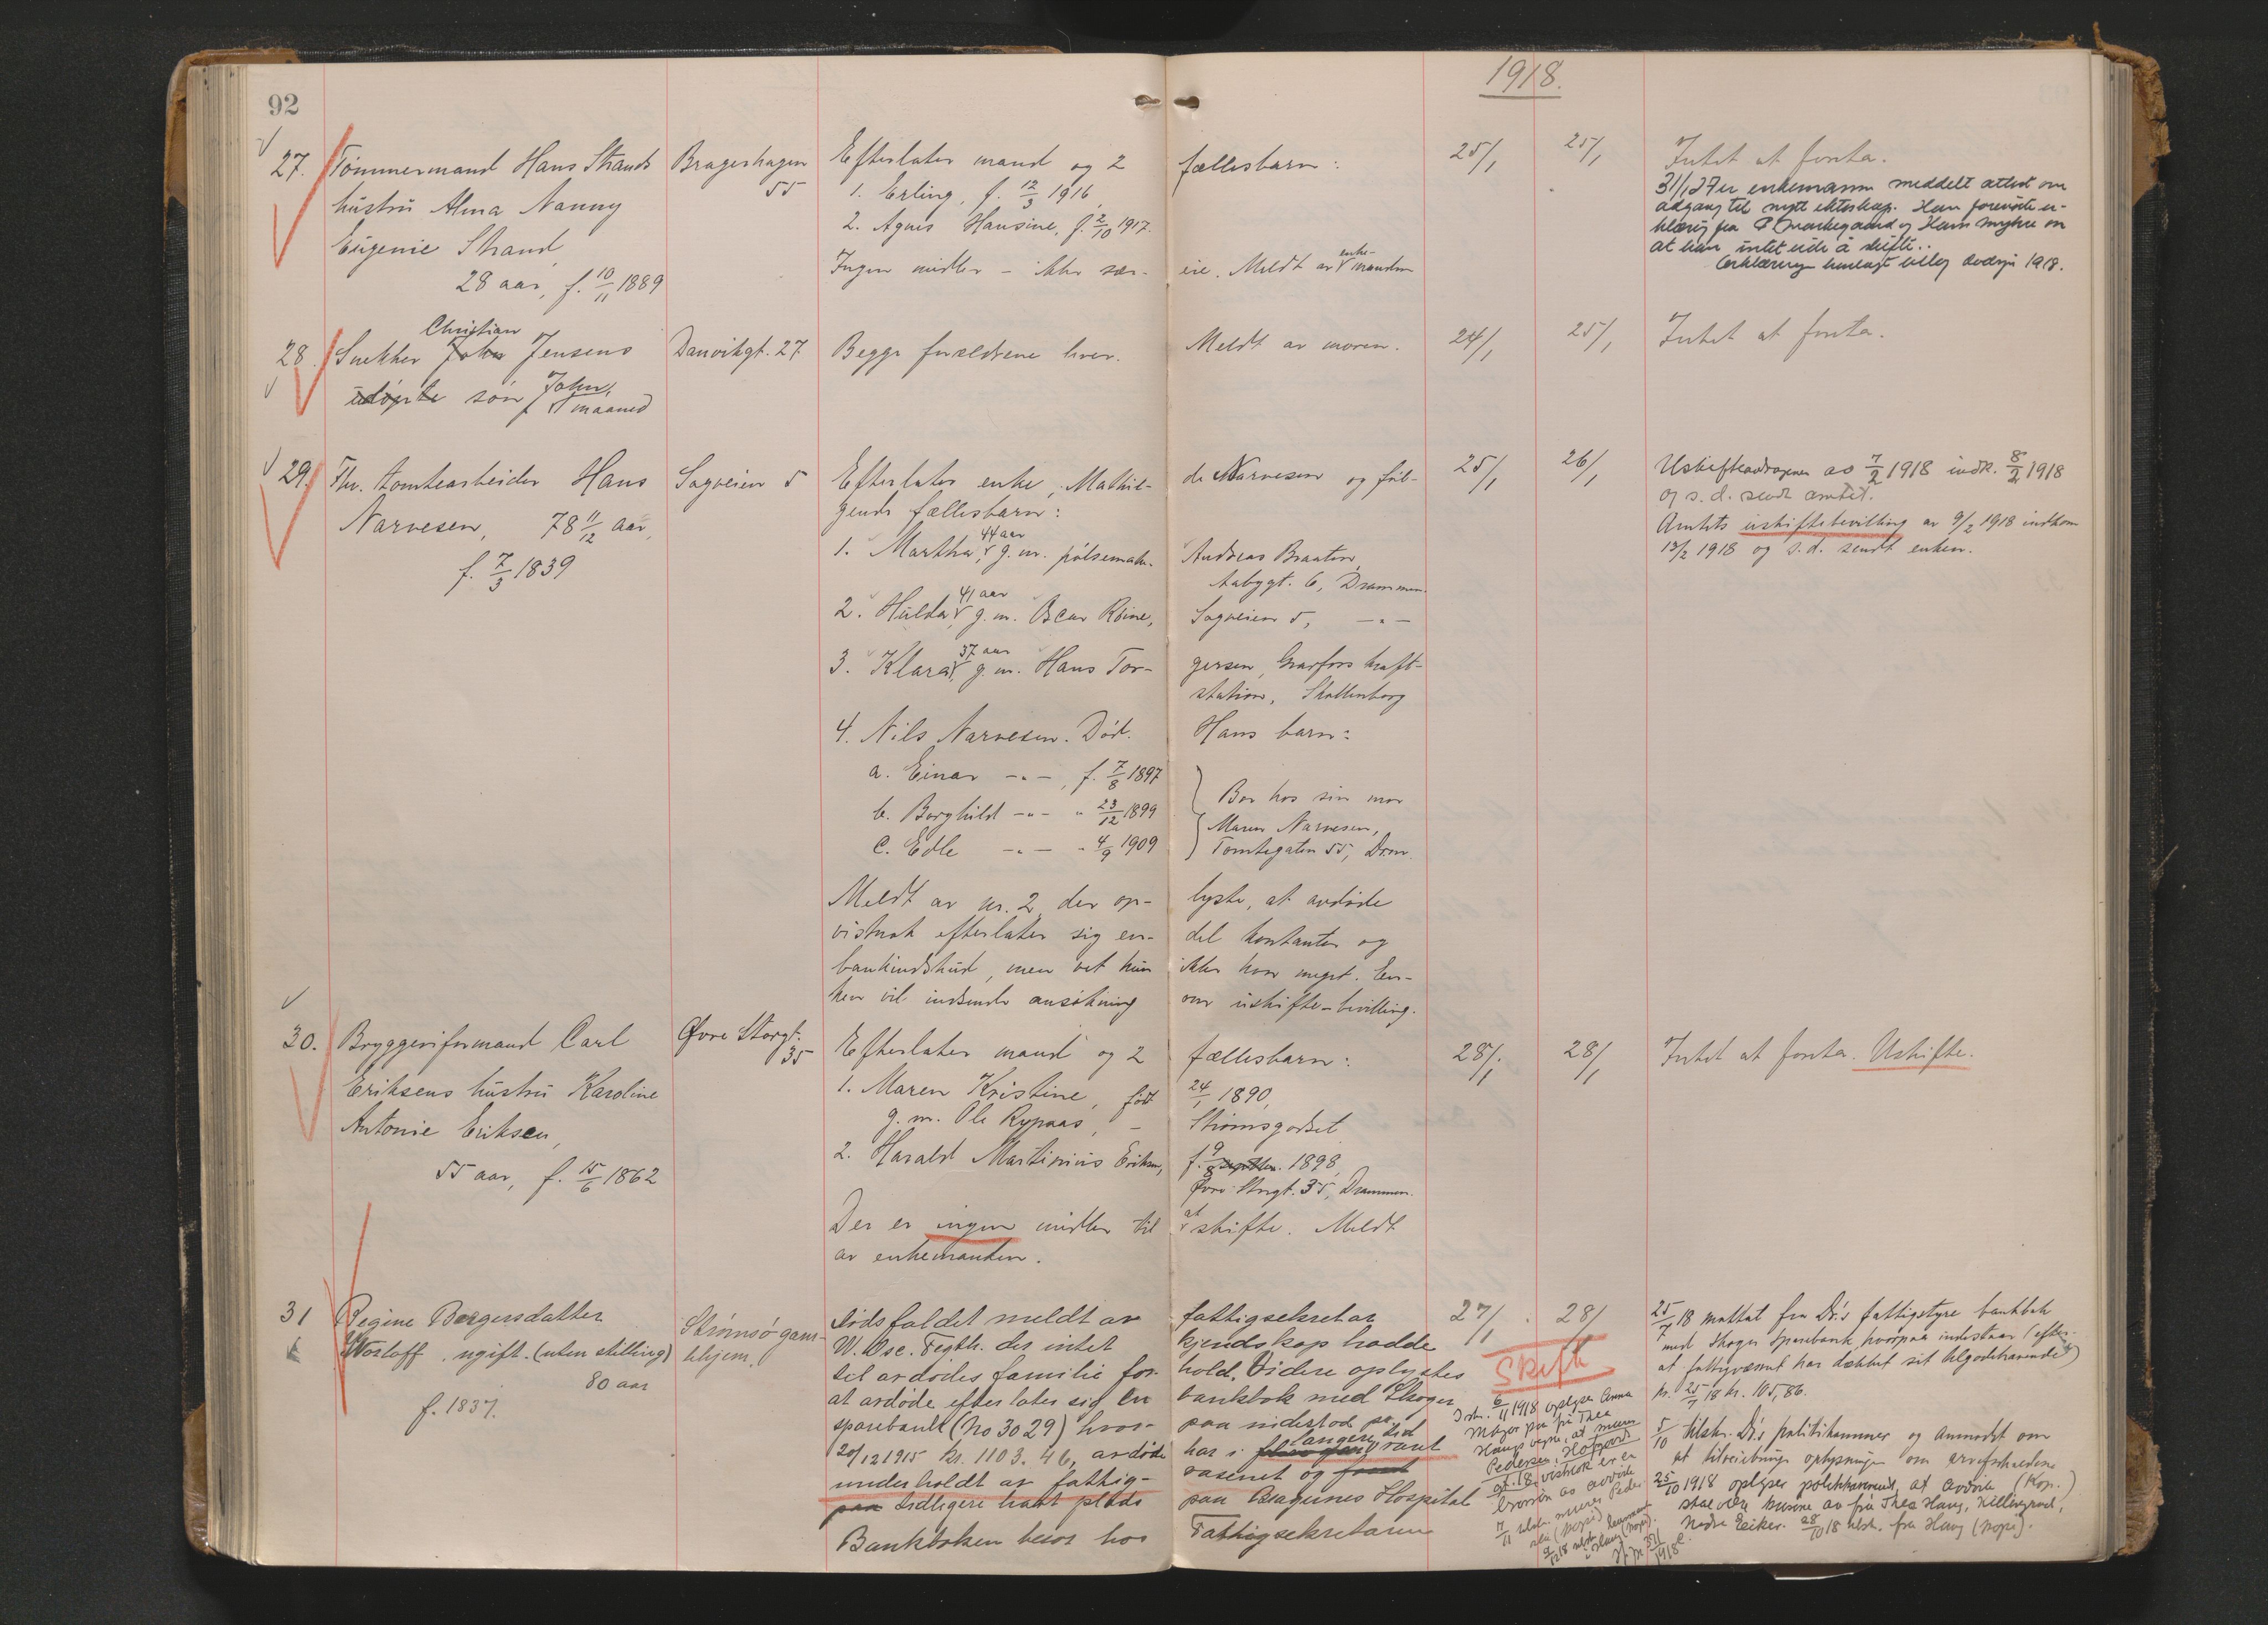 92
1918.
27. Tømmermand Hans Strands
hustru Alma Nanny
Eugenie Strand,
28 aar, f. 10/11 1889
Bragerhagen
55
Efterlater mand og 2 fællesbarn:
1. Erling, f. 12/3 1916
2. Agnes Hansine, f. 2/10 1917.
Ingen midler – ikke sær- eie. Meldt av enke-manden
25/1
25/1
Intet at foreta.
31/1 27 er enkemann meddelt attest om
adgang til nytt ekteskap. Han foreviste er-
klæring fra og Hans Myhre om
at han intet eide å skifte..
Erklæringen henlagt bilag dødsfn 1918.
28. Snekker John Christian Jensens
udøpte søn John,
1 maaned
Danvikgt. 27
Begge forældrene lever. Meldt av moren.
24/1
25/1
Intet at foreta.
29. Fhv. tomtearbeider Hans
Narvesen, 78 11/12 aar,
f. 7/3 1839
Sagveien 5
Efterlater enke, Mathil- de Narvesen og føl-
gende fællesbarn:
1. Martha, 44 aar g. m. pølsemak. Andreas Braaten,
Aabygt. 6, Drammen.
2. Hulda, 41 aar g. m. Oscar Röine, Sagveien 5, – " –
3. Klara, 37 aar g. m. Hans Tor- gersen, Gravfos kraft-
station, Skollenborg
4. Nils Narvesen. Død. Hans barn:
a. Einar – " –, f. 7/8 1897
b. Borghild – " – " 23/12 1899
c. Edle – " – " 4/9 1909
Bor hos sin mor
Maren Narvesen,
Tomtegaten 55, Drm.
Meldt av nr. 2, der op- lyste, at avdøde
vistnok efterlater sig en- del kontanter og
bankindskud, men vet hun ikke hvor meget. En-
ken vil indsende ansøkning om uskifte-bevilling.
25/1
26/1
Uskifteandragende av 7/2 1918 indk. 8/2 1918
og s. d. sendt amtet.
Amtets uskiftebevilling av 9/2 1918 indkom
13/2 1918 og s. d. sendt enken.
30. Bryggeriformand Carl
Eriksens hustru Karoline
Antonie Eriksen,
55 aar, f. 15/6 1862
Øvre Storgt.
35
Efterlater mand og 2 fællesbarn:
1. Maren Kristine, født 24/1 1890,
g. m. Ole Rypaas, – Strømsgodset
2. Harald Martinius Eriksen, f. 9/8 1898,
Øvre Storgt. 35, Drammen.
Der er ingen midler til at skifte. Meldt
av enkemanden.
28/1
28/1
Intet at foreta. Uskifte.
31 Regine Borgersdatter
Wosloff, ugift. (uten stilling)
80 aar
f. 1837.
Strømsø gam-
lehjem.
Dødsfaldet meldt av fattigsekretær
W. Osc. Fegth. der intet kjendskap hadde
til avdødes familie for- hold. Videre oplystes
at avdøde efterlater sig en bankbok med Skoger
sparebank (No 3029) hvor- paa indestod pr.
20/12 1915 kr. 1103.46, avdøde har i længere tid været
underholdt av fattig- væsenet og
paa tidligere havt plads paa Bragernes Hospital
Bankboken beror hos Fattigsekretæren
27/1
28/1
Skifte
I skr. 6/11 1918 oplyser Anna
Moger paa fru Thea
Haugs vegne, at
Pedersen, Hofgaards
gt. 18 vistnok er en
av avdøde
25/7 18 mottat fra Dr.s fattigstyre bankbok
med Skoger Sparebank, hvorpaa indestaar (efter
at fattigvæsenet har dækket sit tilgodehavende)
pr. 25/7 18 kr. 105,86.
5/10 tilskr. Dr.s politikammer og anmodet om
at tilveiebringe oplysninger om arveforholdene
25/10 1918 oplyser politikammeret, at avdøde (Kop.)
skal være kusine av fru Thea Haug, Killingrud,
Nedre Eiker. 28/10 18 tilskr. fru Haug (kopi).